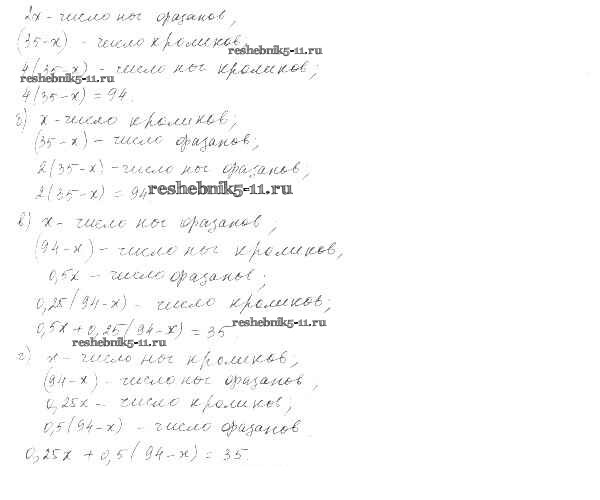 2x - число ног фазанов,
(35-x) - число кроликов,
reshebnik5-11.ru
4(35-x) - число ног кроликов;
reshebnik5-11.ru
4(35-x) = 94.
б) x - число кроликов;
(35-x) - число фазанов;
2(35-x) - число ног фазанов;
2(35-x) = 94
reshebnik5-11.ru
в) x - число ног фазанов;
(94-x) - число ног кроликов,
0,5x - число фазанов;
0,25(94-x) - число кроликов;
0,5x + 0,25(94-x) = 35
reshebnik5-11.ru
reshebnik5-11.ru
г) x - число ног кроликов,
(94-x) - число ног фазанов,
0,25x - число кроликов;
0,5(94-x) - число фазанов
0,25x + 0,5(94-x) = 35.